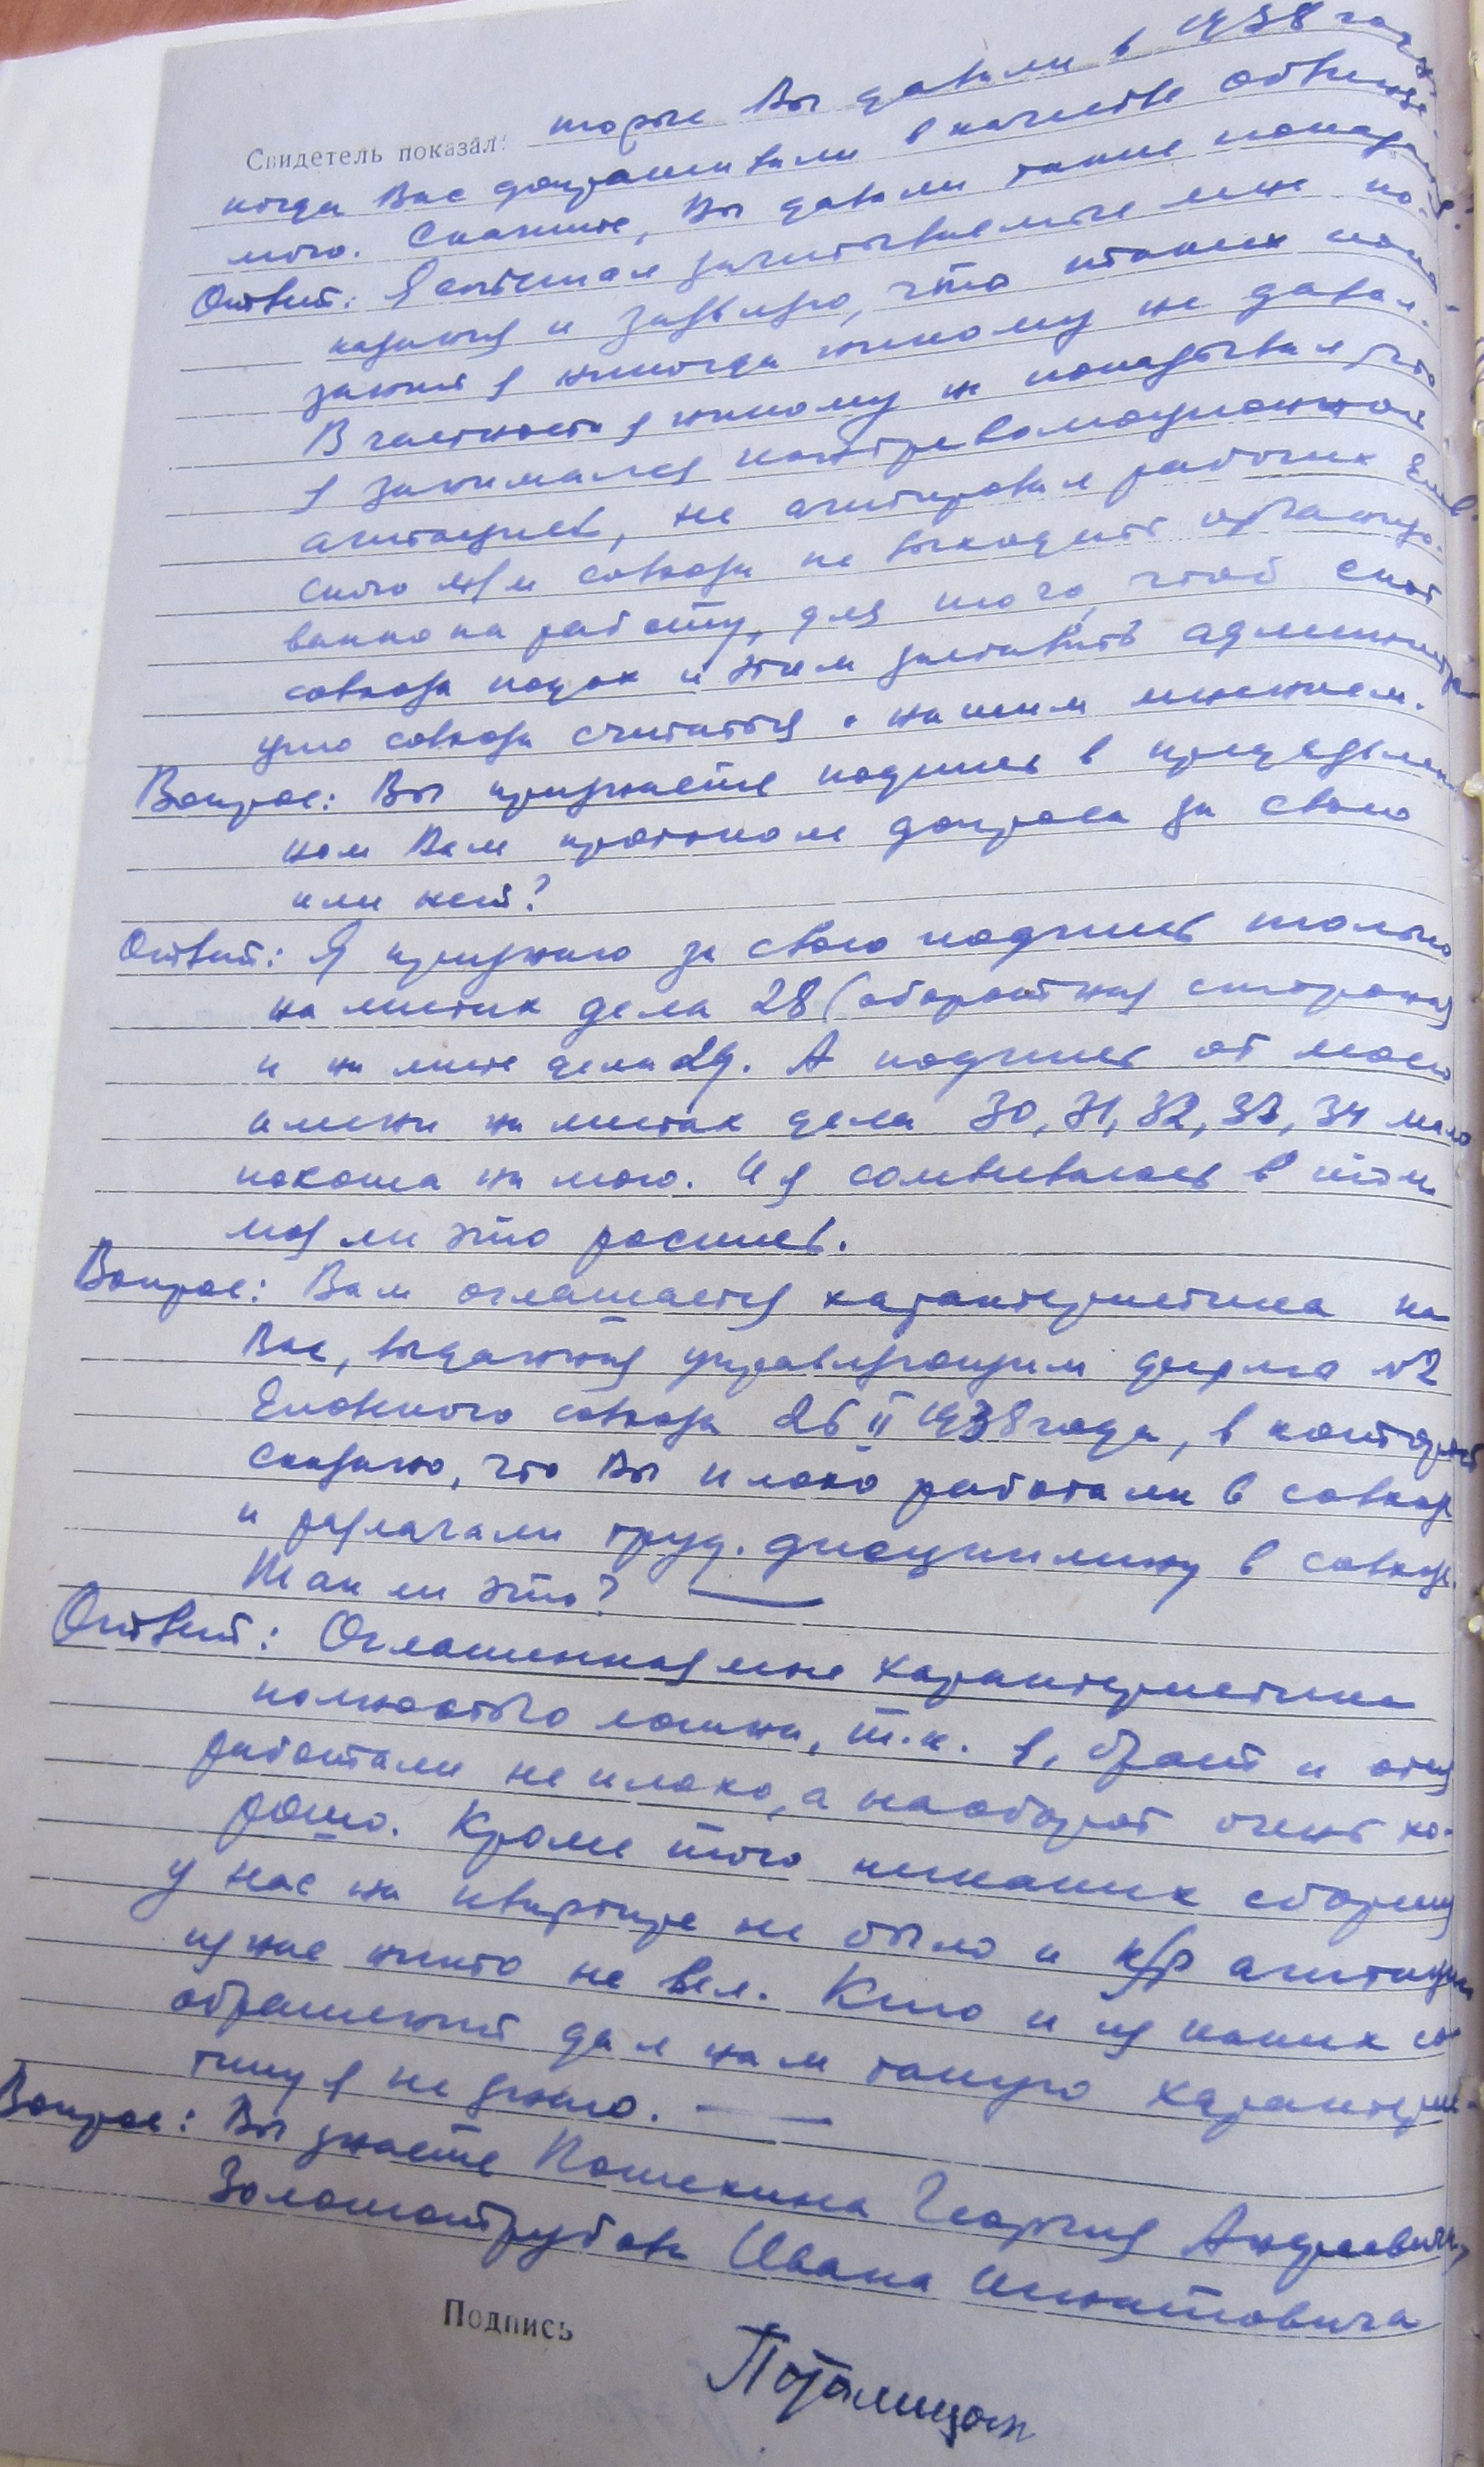 Свидетель показал: торые Вы давали в 1938 году,
когда Вас допрашивали в качестве обвиняе-
мого. Скажите, Вы давали такие показания?
Ответ: Я слышал зачитываемые мне по-
казания и заявляю, что таких пока-
заний я никогда никому не давал.
В частности я никому не показывал, что
я занимался контрреволюционной
агитацией, не агитировал рабочих Елов-
ского совхоза не выходить организо-
ванно на работу, для того, чтоб скот
совхоза подох и этим заставить администра-
цию совхоза считаться с нашим мнением.
Вопрос: Вы признаёте подпись в предъявлен-
ном Вам протоколе допроса за свою
или нет?
Ответ: Я признаю за свою подпись только
на листах дела 28 (оборотная сторона)
и на листе дела 29. А подпись от моего
имени на листах дела 30, 31, 32, 33, 34 мало
похожа на мою. И я сомневаюсь в том
моя ли это роспись.
Вопрос: Вам оглашается характеристика на
Вас, выданная управляющим фермы №2
Еловского совхоза 26 II 1938 года, в которой
сказано, что Вы плохо работали в совхозе
и разлагали труд. дисциплину в совхозе.
Так ли это?
Ответ: Оглашенная мне характеристика
полностью ложна, т.к. я, брат и отец
работали не плохо, а наоборот очень хо-
рошо. Кроме того никаких сборищ
у нас на квартире не было и к/р агитации
из нас никто не вел. Кто и из каких со-
ображений дал нам такую характерис-
тику я не знаю.
Вопрос: Вы знаете Пошехина Георгия Андреевича,
Золототрубова Ивана Игнатовича
Подпись